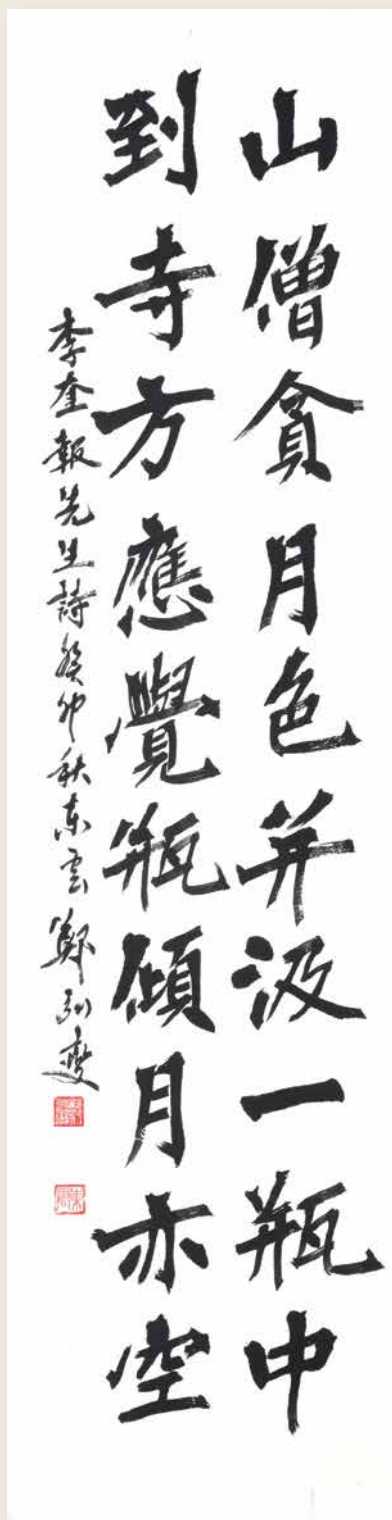 山僧貪月色并汲一瓶中
到寺方應覺瓶傾月亦空
李奎報先生詩癸卯秋東雲鄭弘燮